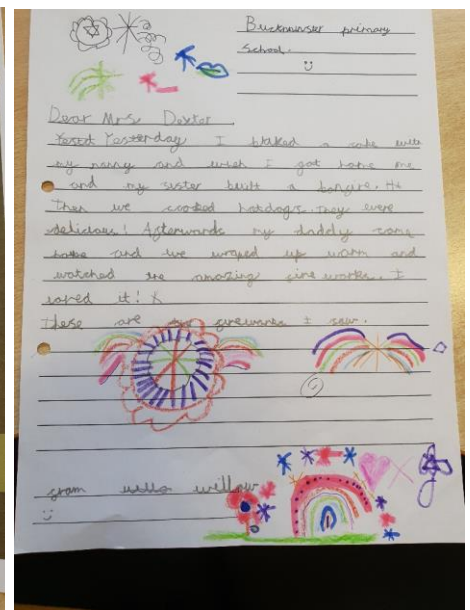 Buckminster primary
School.
Dear Mrs Dexter
Yesterday I baked a cake with
my nanny and wish I got home me
and my sister built a bongire.
Then we coocked hotdogs. They were
delicious! Afterwards my daddy come
home and we wraped up warm and
watched the amazing fireworks. I
loved it! X
these are the fireworks I saw.
from willow